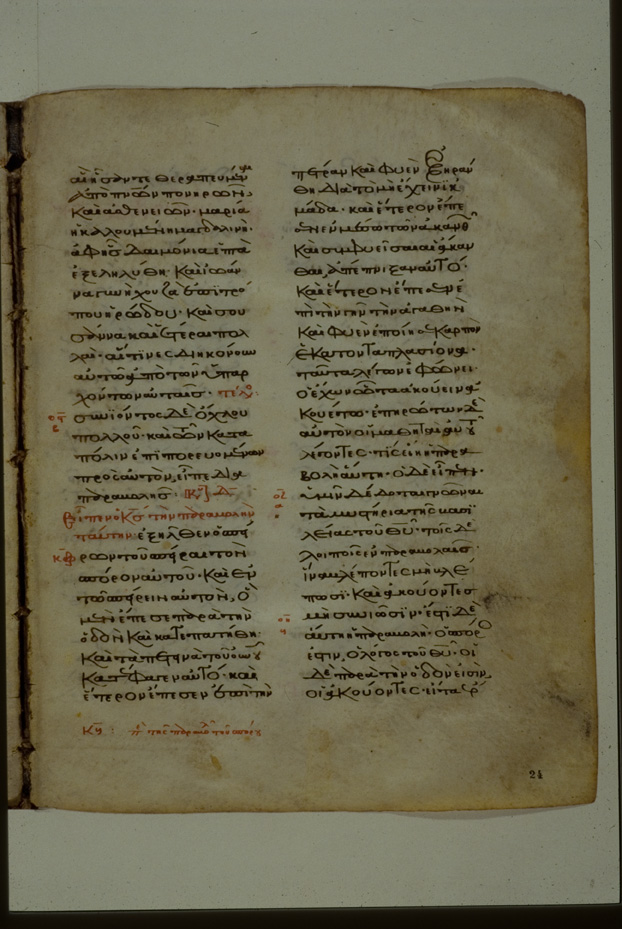 αἳ ἦσαν τεθεραπευμέναι
ἀπὸ πνῶν πονηρῶν
καὶ ἀσθενειῶν· μαρία
ἡ καλουμένη μαγδαληνή·
ἀφ' ἧς δαιμόνια ἑπτὰ
ἐξεληλύθη· καὶ ἰωάν
να γυνὴ χουζᾶ ἐπιτρό
που ἡρώδου· καὶ σου
σάννα καὶ ἕτεραι πολ
λαί· αἵτινες διηκόνουν
αὐτῶ ἀπὸ τῶν ὑπαρ
χόντων αὐταῖς·
συνιόντος δὲ ὄχλου
πολλοῦ· καὶ τῶν κατὰ
πόλιν ἐπιπορευομένων
πρὸς αὐτὸν, εἶπε διὰ
παραβολῆς·
εἶπεν ὁ κς τὴν παραβολὴν
ταύτην· ἐξῆλθεν ὁ σπεί
ρων τοῦ σπεῖραι τὸν
σπόρον αὐτοῦ· καὶ ἐν
τῶ σπείρειν αὐτὸν, ὃ
μὲν ἔπεσε παρὰ τὴν
ὁδὸν καὶ κατεπατήθη·
καὶ τὰ πετεινὰ τοῦ οὐνοῦ
κατέφαγεν αὐτό· καὶ
ἕτερον ἔπεσεν ἐπὶ τὴν
τῆς παραβολ τοῦ σπόρου
πέτραν καὶ φυὲν ἐξηράν
θη διὰ τὸ μὴ ἔχειν ἰκ
μάδα· καὶ ἕτερον ἔπε
σεν ἐν μέσω τῶν ἀκανθῶν
καὶ συμφυεῖσαι αἱ ἄκαν
θαι, ἀπέπνιξαν αὐτό·
καὶ ἕτερον ἔπεσεν ἐ
πὶ τὴν γῆν τὴν ἀγαθὴν
καὶ φυὲν ἐποίησε καρπὸν
ἑκατονταπλασίονα·
ταῦτα λέγων ἐφώνει·
ὁ ἔχων ὦτα ἀκούειν ἀ
κουέτω· ἐπηρώτων δὲ
αὐτὸν οἱ μαθηταὶ αὐτοῦ
λέγοντες· τίς εἴη ἡ παρα
βολὴ αὕτη· ὁ δὲ εἶπεν·
ὑμῖν δέδοται γνῶναι
τὰ μυστήρια τῆς βασι
λείας τοῦ θυ· τοῖς δὲ
λοιποῖς ἐν παραβολαῖς·
ἵνα βλέποντες μὴ βλέ
πωσι· καὶ ἀκούοντες
μὴ συνιῶσιν· ἔστι δὲ
αὕτη ἡ παραβολή· ὁ σπόρος
ἐστὶν, ὁ λόγος τοῦ θυ· οἱ
δὲ παρὰ τὴν ὁδὸν εἰσὶν,
οἱ ἀκούοντες· εἶτα ἔρ
24